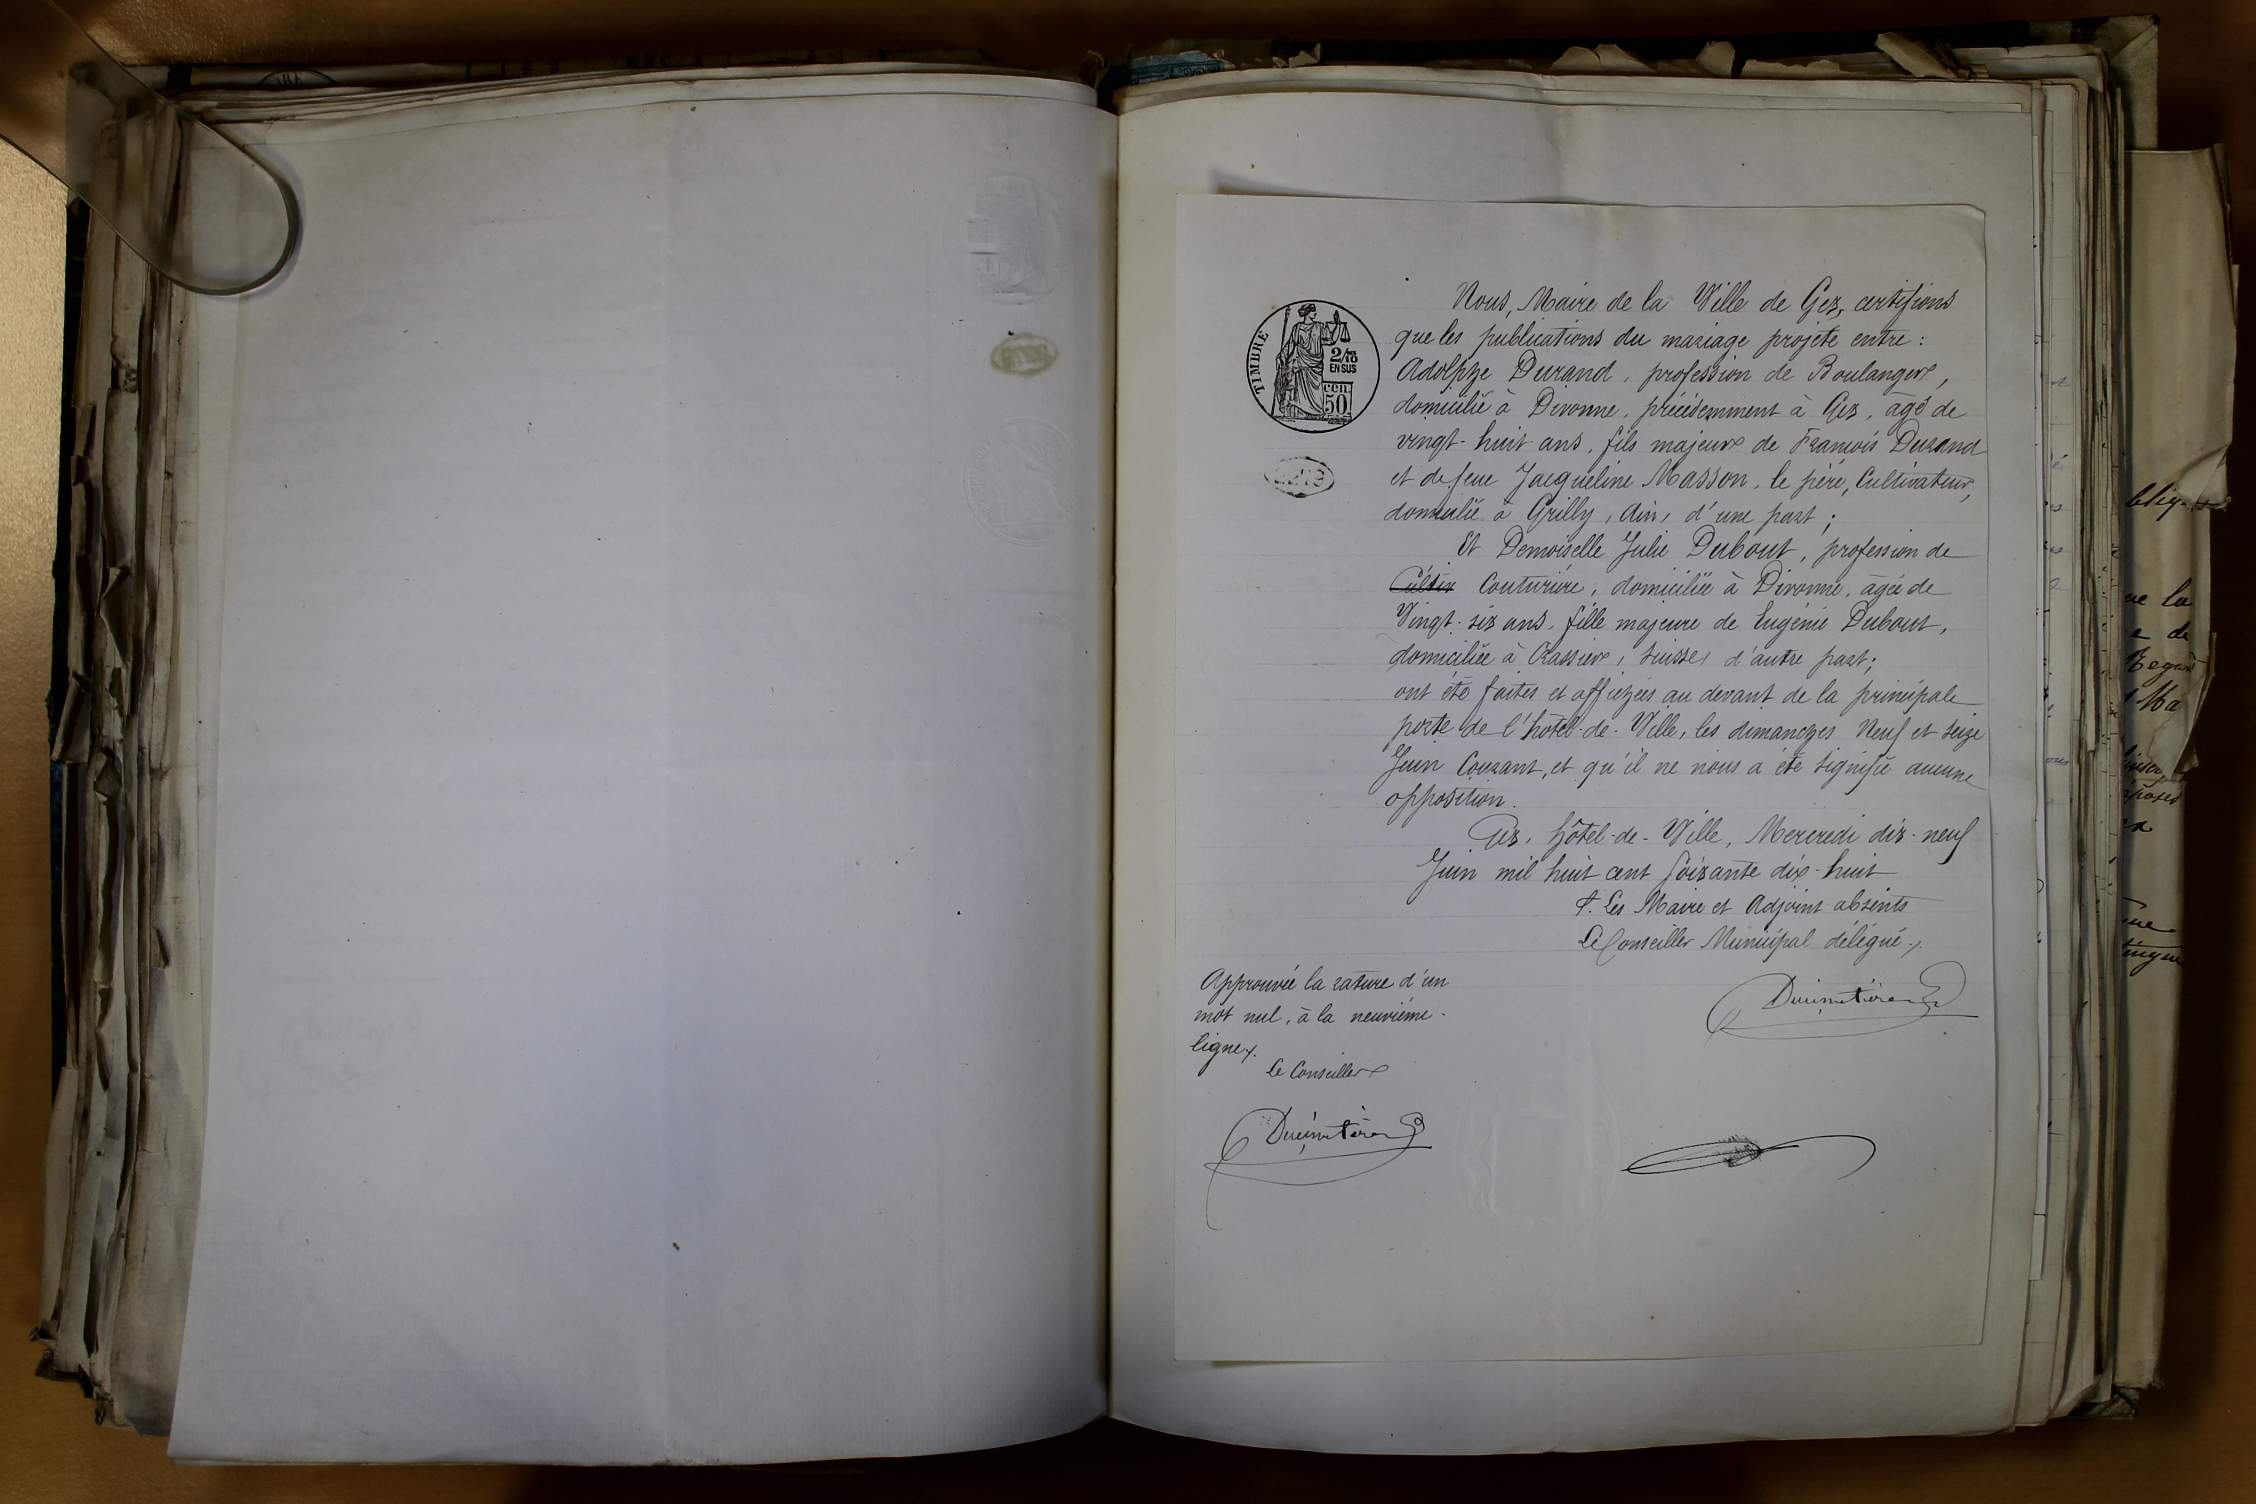 TIMBRE
2/10
EN SUS
50
Nous, Maire de la Ville de Gex, certifions
que les publications du mariage projeté entre :
Adolphe Durand, profession de Boulanger,
domicilié à Divonne, précédemment à Gex, âgé de
vingt-huit ans, fils majeur de François Durand
et de feue Jacqueline Masson, le père, Cultivateur,
domicilié à Grilly, Ain, d'une part ;
Et Demoiselle Julie Dubout, profession de
Couturière, domiciliée à Divonne, âgée de
Vingt-six ans, fille majeure de Eugénie Dubout,
domiciliée à Crassier, Suisse, d'autre part ;
ont été faites et affichées au devant de la principale
porte de l'hôtel-de-Ville, les dimanches Neuf et seize
Juin Courant, et qu'il ne nous a été signifié aucune
opposition.
Gex, hôtel-de-Ville, Mercredi dix-neuf
Juin mil huit cent soixante dix-huit
P. Les Maire et Adjoint absents
Le Conseiller Municipal délégué.
Approuvée la rature d'un
mot nul, à la neuvième
ligne.
Le Conseiller